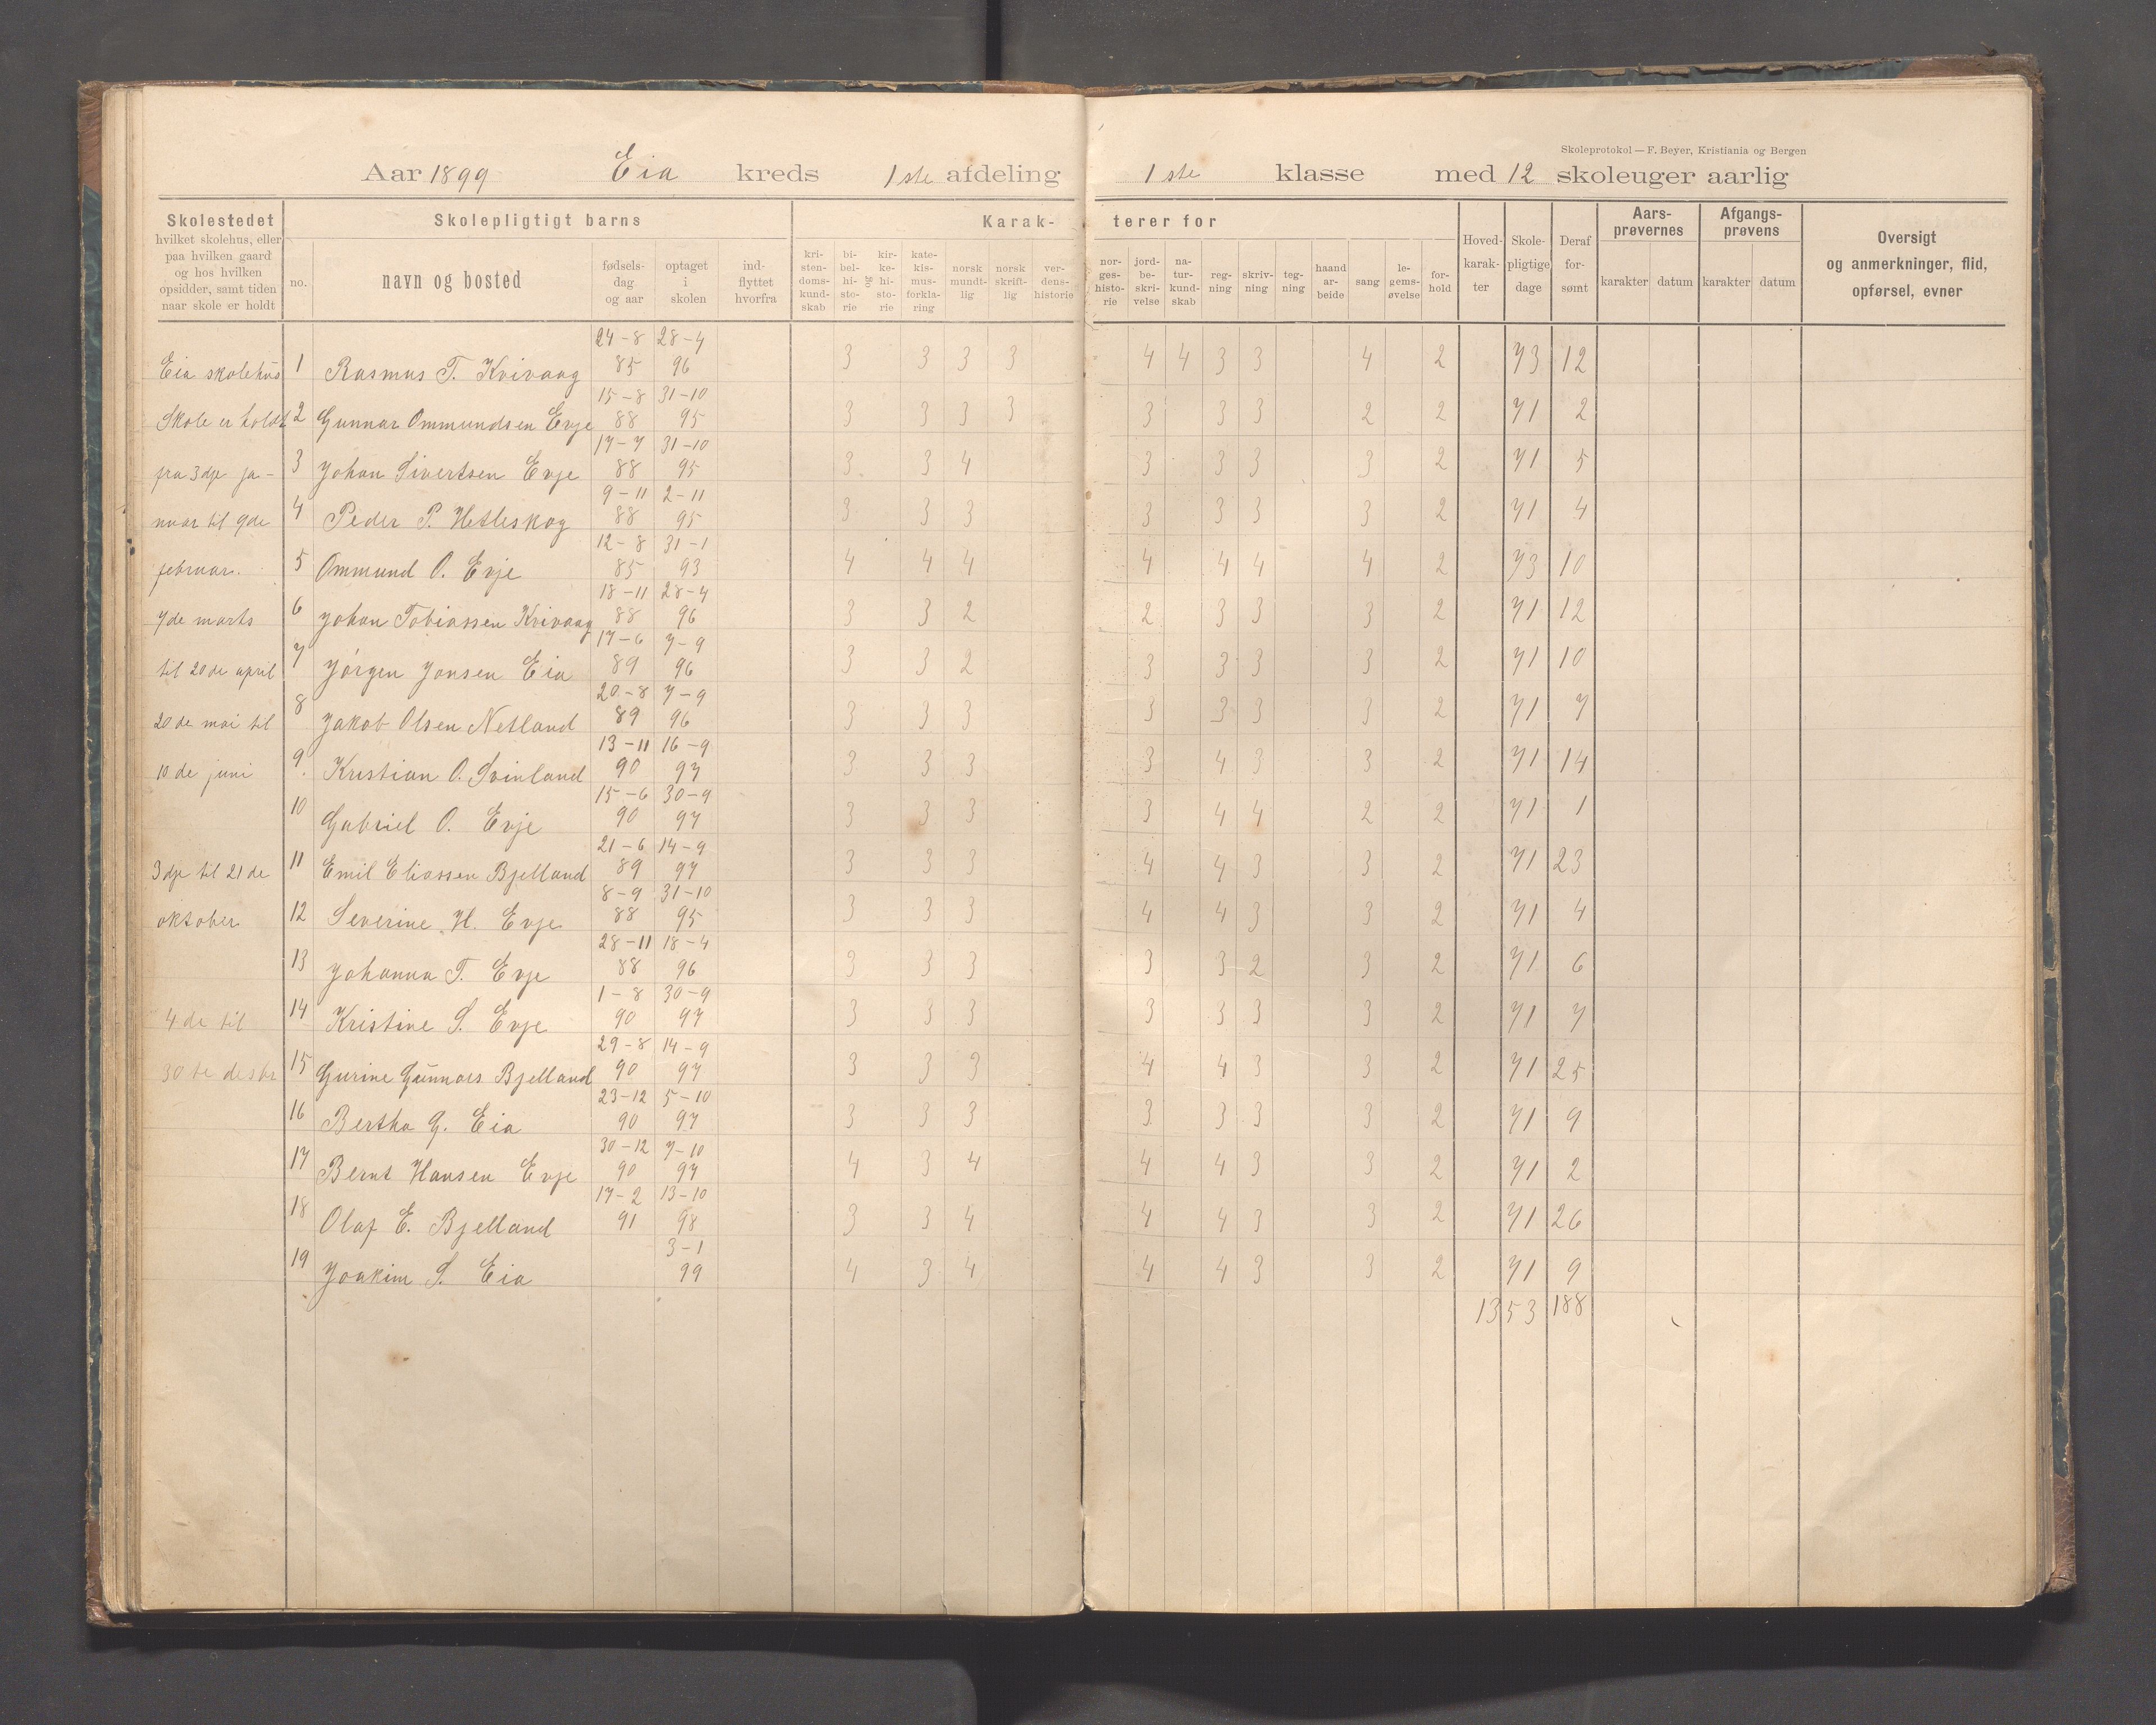 Skoleprotokol — F. Beyer, Kristiania og Bergen
Aar 1899 Eia kreds 1ste afdeling 1ste klasse med 12 skoleuger aarlig
Skolestedet
hvilket skolehus, eller
paa hvilken gaard
og hos hvilken
opsidder, samt tiden
naar skole er holdt
Skolepligtigt barns
no.
navn og bosted
fødsels-
dag
og aar
optaget
i
skolen
ind-
flyttet
hvorfra
Karak-
terer for
kri-
sten-
doms-
kund-
skab
bi-
bel-
hi-
sto-
rie
og
kir-
ke-
hi-
sto-
rie
kate-
kis-
mus-
forkla-
ring
norsk
mundt-
lig
norsk
skrift-
lig
ver-
dens-
historie
nor-
ges-
histo-
rie
jord-
be-
skri-
velse
na-
tur-
kund-
skab
reg-
ning
skriv-
ning
teg-
ning
haand
ar-
beide
sang
le-
gems-
øvelse
for-
hold
Hoved-
karak-
ter
Skole-
pligtige
dage
Deraf
for-
sømt
Aars-
prøvernes
karakter datum
Afgangs-
prøvens
karakter datum
Oversigt
og anmerkninger, flid,
opførsel, evner
24-8 28-4
Eia skolehus 1 Rasmus T. Kvivaag 85 96 3 3 3 3 4 4 3 3 4 2 73 12
15-8 31-10
Skole er holdt 2 Gunnar Ommundsen Evje 88 95 3 3 3 3 3 3 3 2 2 71 2
17-7 31-10
fra 3dje ja- 3 Johan Sivertsen Evje 88 95 3 3 4 3 3 3 3 2 71 5
9-11 2-11
nuar til 9de 4 Peder P. Hetleskog 88 95 3 3 3 3 3 3 3 2 71 4
12-8 31-1
februar. 5 Ommund O. Evje 85 93 4 4 4 4 4 4 4 2 73 10
18-11 28-4
7de marts 6 Johan Tobiassen Kvivaag 88 96 3 3 2 2 3 3 3 2 71 12
17-6 7-9
til 20de april 7 Jörgen Jonsen Eia 89 96 3 3 2 3 3 3 3 2 71 10
20-8 7-9
20de mai til 8 Jakob Olsen Netland 89 96 3 3 3 3 3 3 3 2 71 7
13-11 16-9
10de juni 9. Kristian O. Svinland 90 97 3 3 3 3 4 3 3 2 71 14
15-6 30-9
10 Gabriel O. Evje 90 97 3 3 3 3 4 4 2 2 71 1
21-6 14-9
3dje til 21de 11 Emil Eliassen Bjelland 89 97 3 3 3 4 4 3 3 2 71 23
8-9 31-10
oktober 12 Severine H. Evje 88 95 3 3 3 4 4 3 3 2 71 4
28-11 18-4
13 Johanna T. Evje 88 96 3 3 3 3 3 2 3 2 71 6
1-8 30-9
4de til 14 Kristine S. Evje 90 97 3 3 3 3 3 3 3 2 71 7
29-8 14-9
30te desbr 15 Gurine Gunnars Bjelland 90 97 3 3 3 4 4 3 3 2 71 25
23-12 5-10
16 Bertha G. Eia 90 97 3 3 3 3 3 3 3 2 71 9
30-12 7-10
17 Bernt Hansen Evje 90 97 4 3 4 4 4 3 3 2 71 2
17-2 13-10
18 Olaf E. Bjelland 91 98 3 3 4 4 4 3 3 2 71 26
3-1
19 Joakim S. Eia 99 4 3 4 4 4 3 3 2 71 9
1353 188